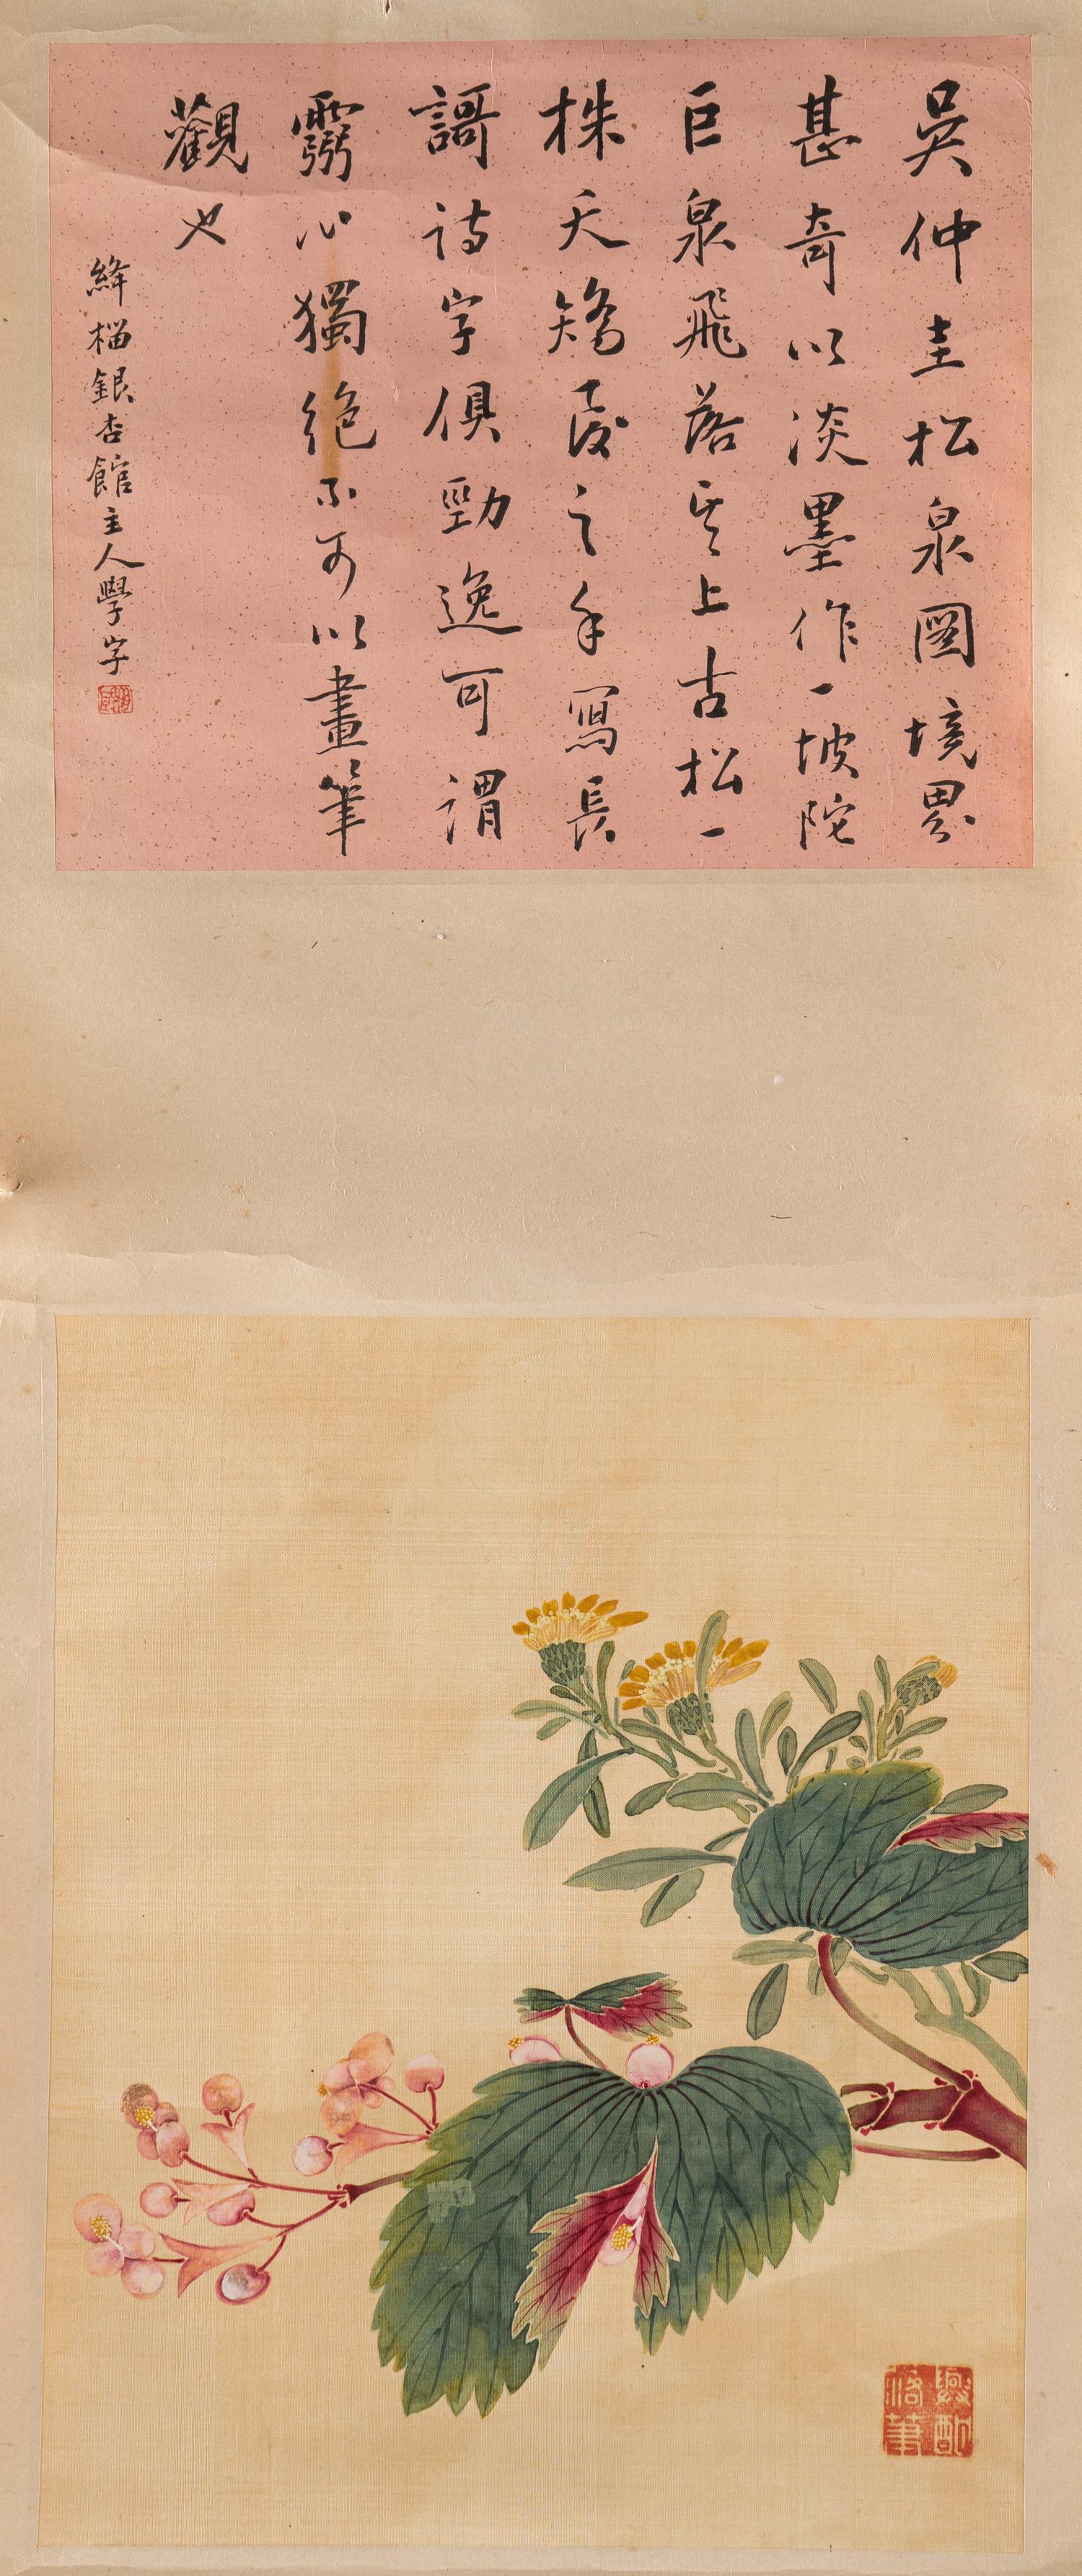 吳仲圭松泉圖境界
甚奇以淡墨作一坡陀
巨泉飛落其上古松一
株夭矯
之手寫長
謌詩字俱勁逸可謂
霛心獨絕不可以畫筆
觀也
絳榴銀杏館主人學字
興酣
落筆